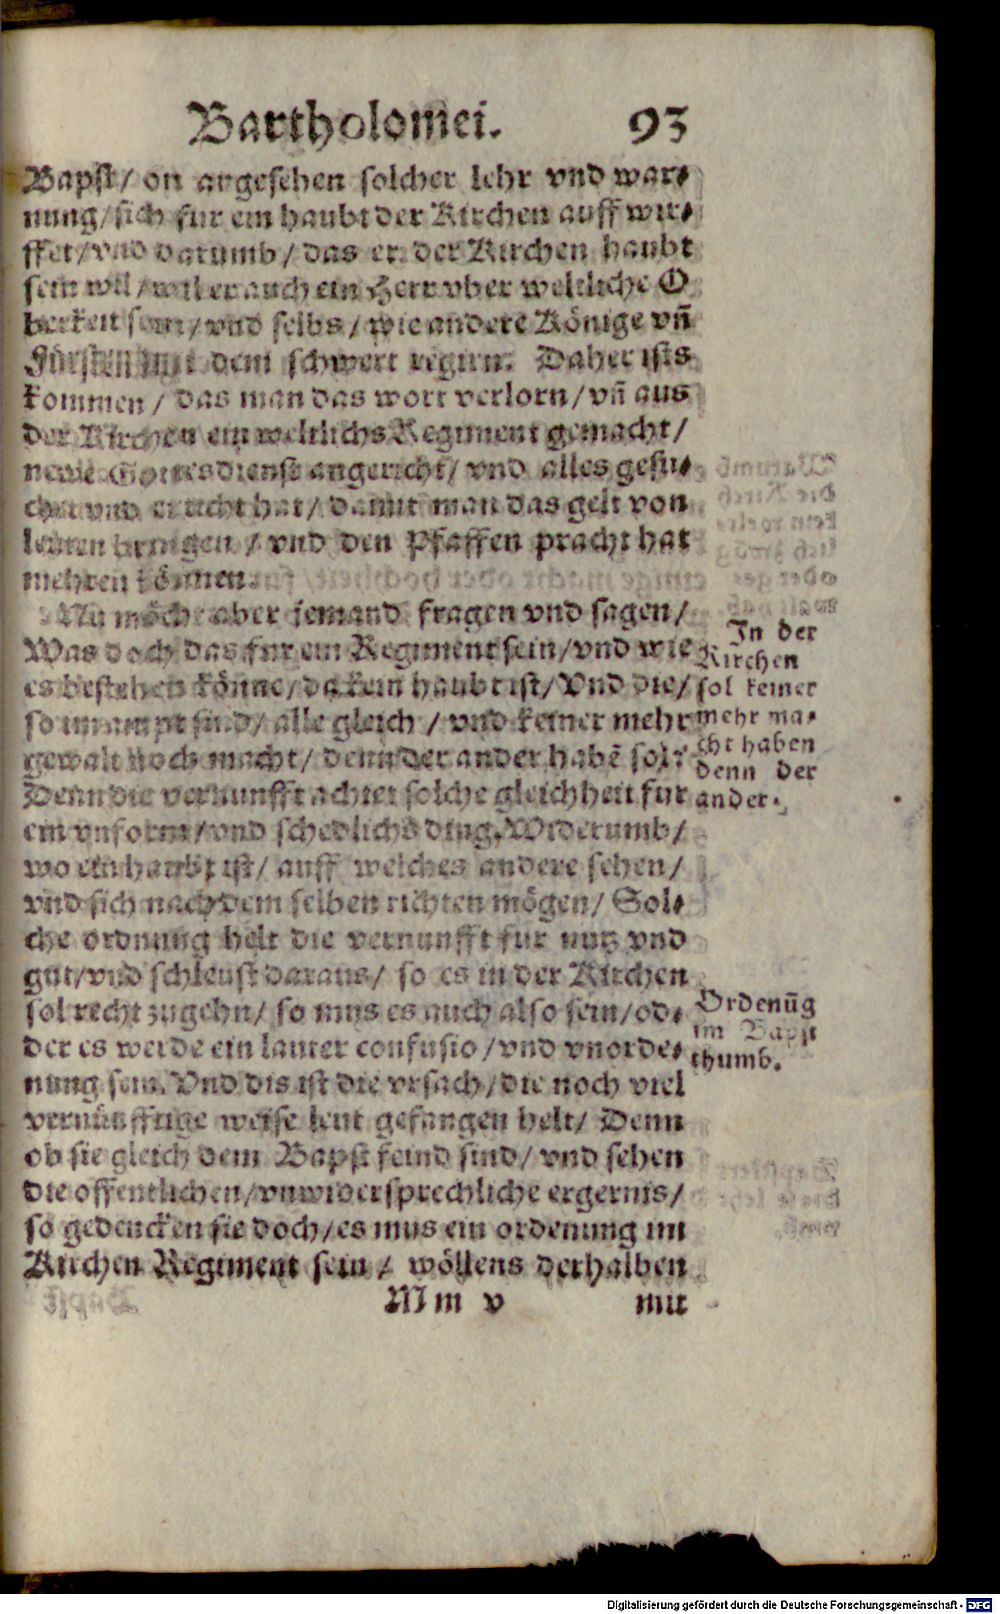 Bartholomei. 93
Bapst/ on angesehen solcher lehr vnd war⸗
nung/sich fur ein haubt der Kirchen auff wir⸗
ffet/vnd darumb/das er der Kirchen haubt
sein wil/wil er auch ein Herr vber weltliche O
berkeit sein/vnd selbs/wie andere Könige vñ
Fürsten mit dem schwert regirn. Daher ists
kommen/ das man das wort verlorn/vñ aus
der Kirchen ein weltlichs Regiment gemacht/
newe Gottesdienst angericht/ vnd alles gesu⸗
chet vnd erticht hat/ damit man das gelt von
leuten bringen / vnd den Pfaffen pracht hat
mehren können.
Nu möcht aber jemand fragen vnd sagen/
Was doch das fur ein Regiment sein/vnd wie
es bestehen könne/da kein haubt ist/Vnd die/
so im ampt sind/ alle gleich / vnd keiner mehr
gewalt noch macht/ denn der ander habē sol?
Denn die vernunfft achtet solche gleichheit fur
ein vnform/vnd schedlichs ding. Widerumb/
wo ein haubt ist/ auff welches andere sehen/
vnd sich nach dem selben richten mögen/ Sol⸗
che ordnung helt die vernunfft fur nutz vnd
gut/vnd schleust daraus/ so es in der Kirchen
sol recht zugehn/ so mus es auch also sein/od⸗
der es werde ein lauter confusio/vnd vnorde⸗
nung sein. Vnd dis ist die vrsach/die noch viel
vernünfftige weise leut gefangen helt/ Denn
ob sie gleich dem Bapst feind sind/ vnd sehen
die offentlichen/vnwidersprechliche ergernis/
so gedencken sie doch/es mus ein ordenung im
Kirchen Regiment sein/ wöllens derhalben
Mm v mit
In der
Kirchen
sol keiner
mehr ma⸗
cht haben
denn der
ander.
Ordenūg
im Bapst
thumb.
Digitalisierung gefördert durch die Deutsche Forschungsgemeinschaft - DFG